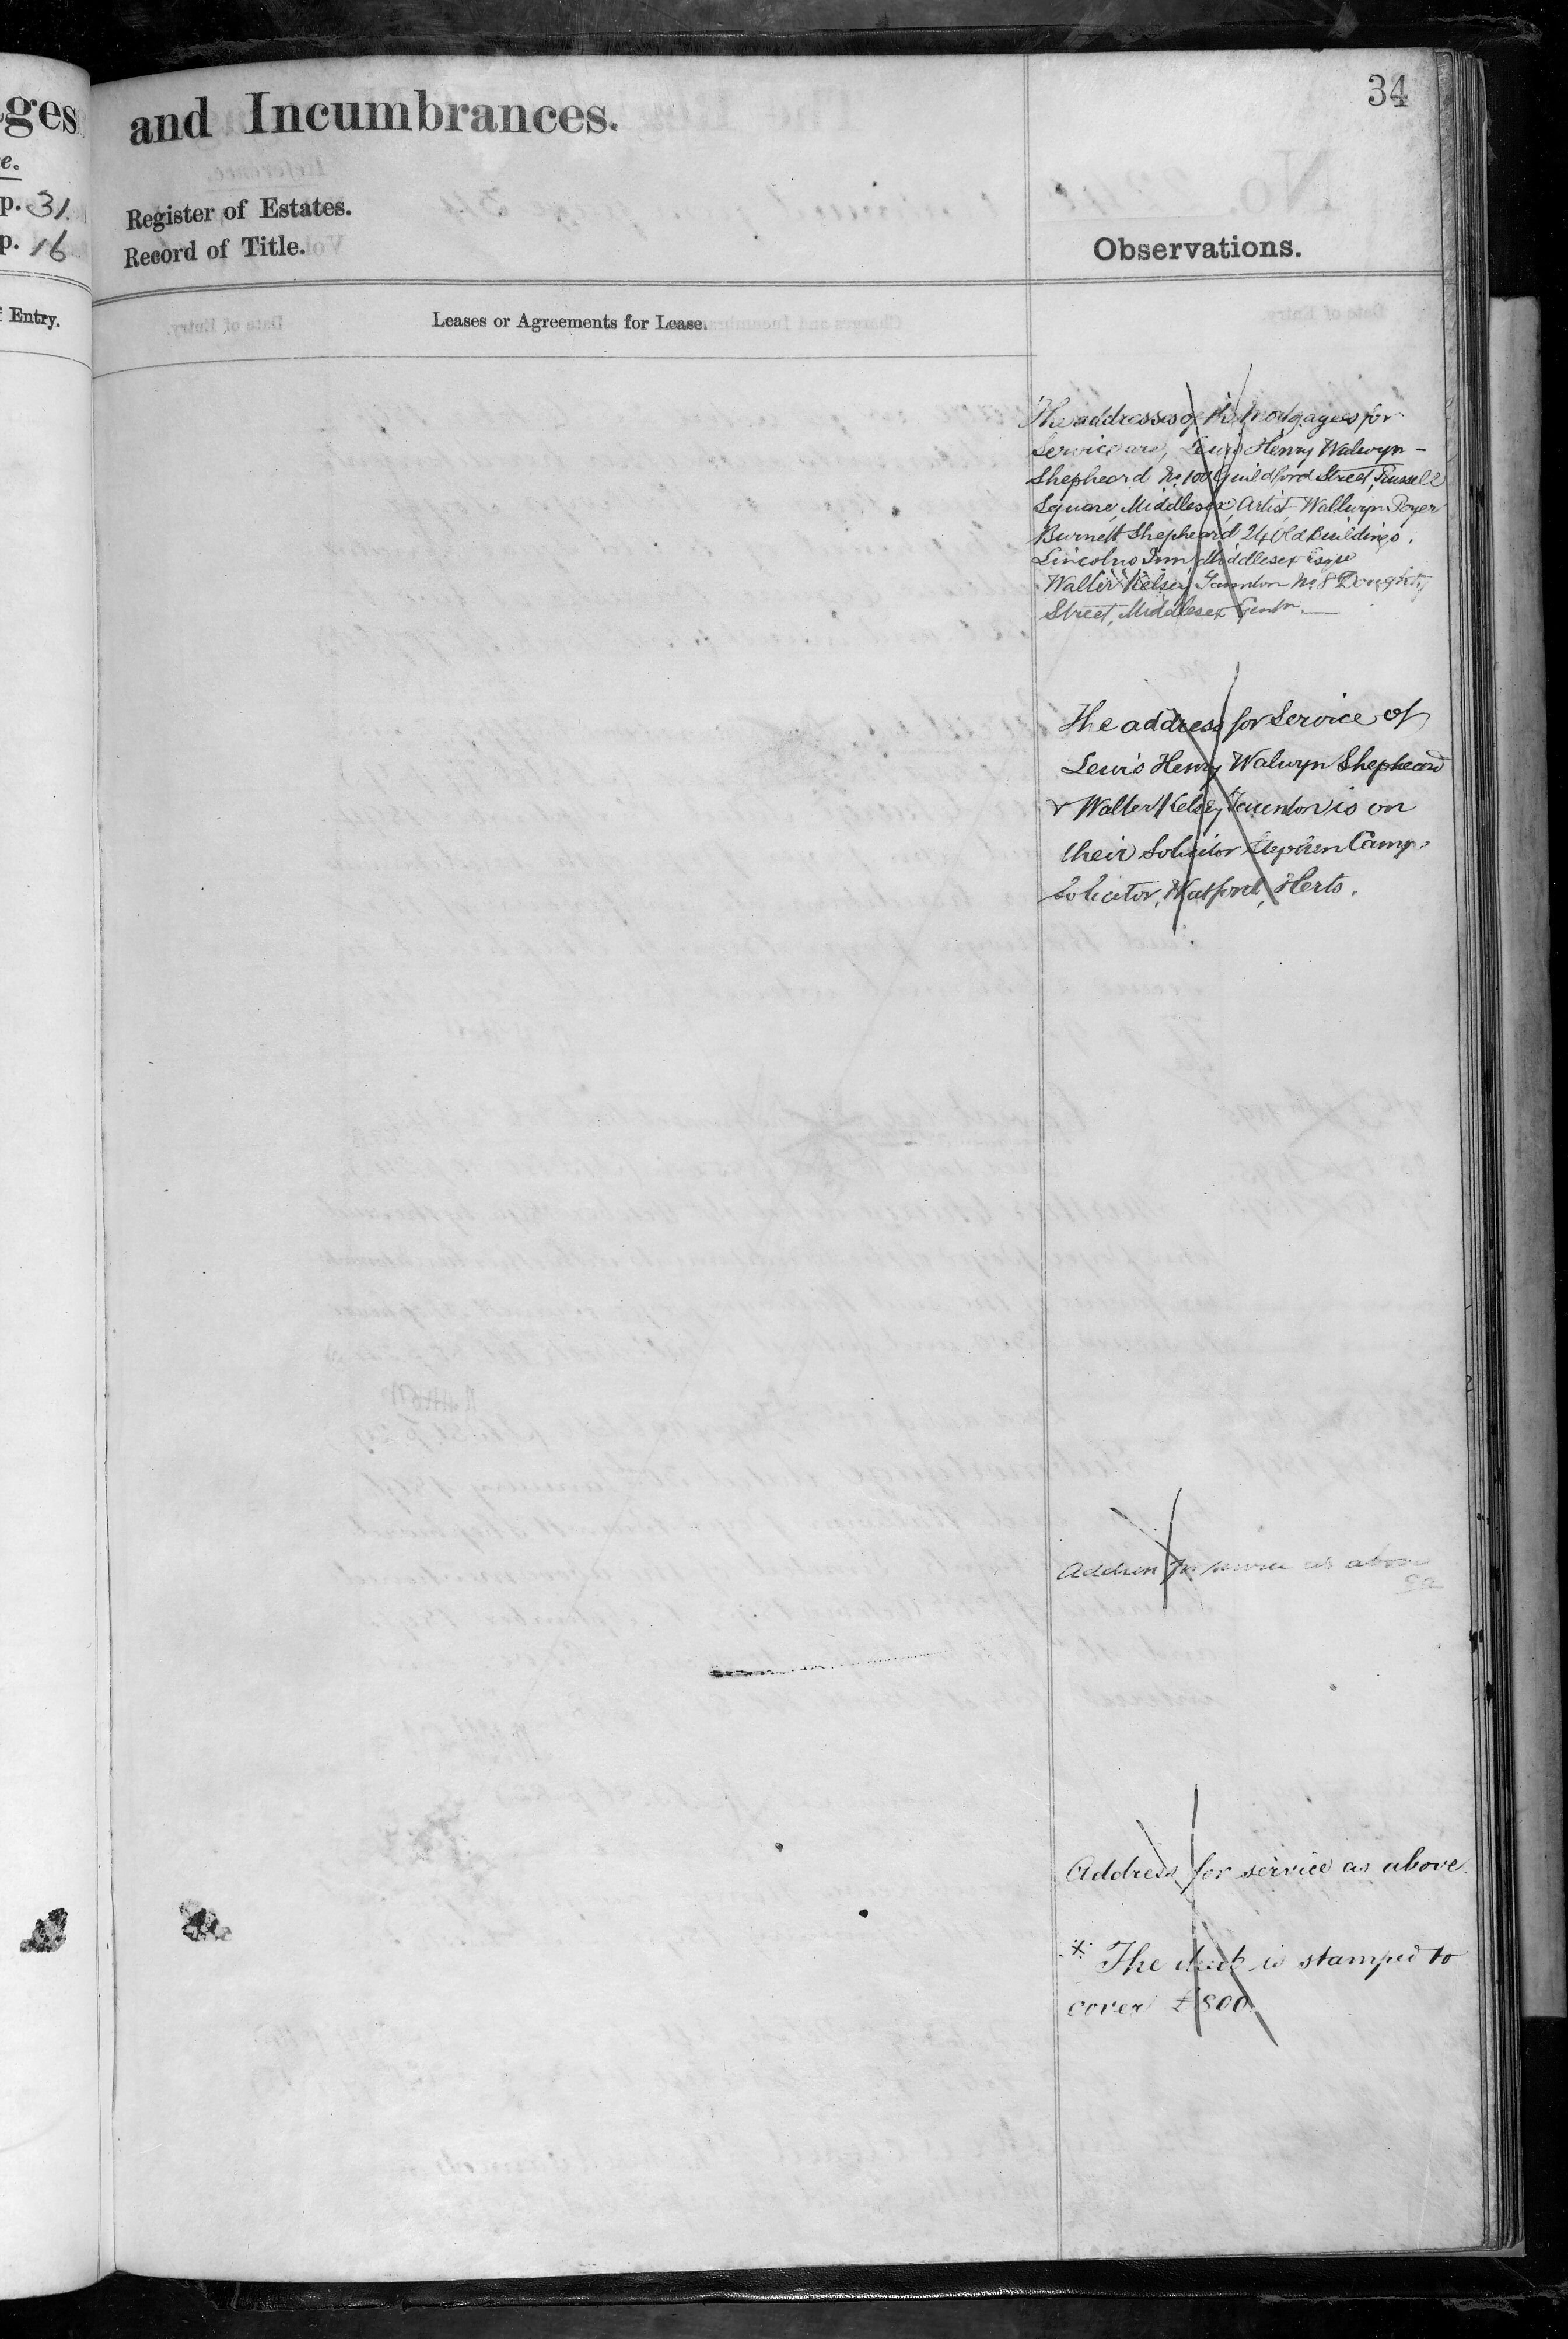 34
ges
and Incumbrances.
e.
p. 31.
Register of Estates.
p. 16
Record of Title.
Observations.
Entry.
Leases or Agreements for Lease.
The addresses of the Mortgagees for
Service are, Lewis Henry Walwyn -
Shepheard No. 100 Guildford Street, Russell
Square, Middlesex, Artist, Wallwyn Poyer
Burnett Shepheard 24 Old Buildings,
Lincolns Inn, Middlesex Esqre
Walter Kelsey Taunton No. 8 Doughty
Street, Middlesex Gentn.
The address for Service of
Lewis Henry Walwyn Shepheard
& Walter Kelsey Taunton is on
their Solicitor Stephen Camp
Solicitor, Watford, Herts.
Address for service as above
Address for service as above.
* The deed is stamped to
cover £800